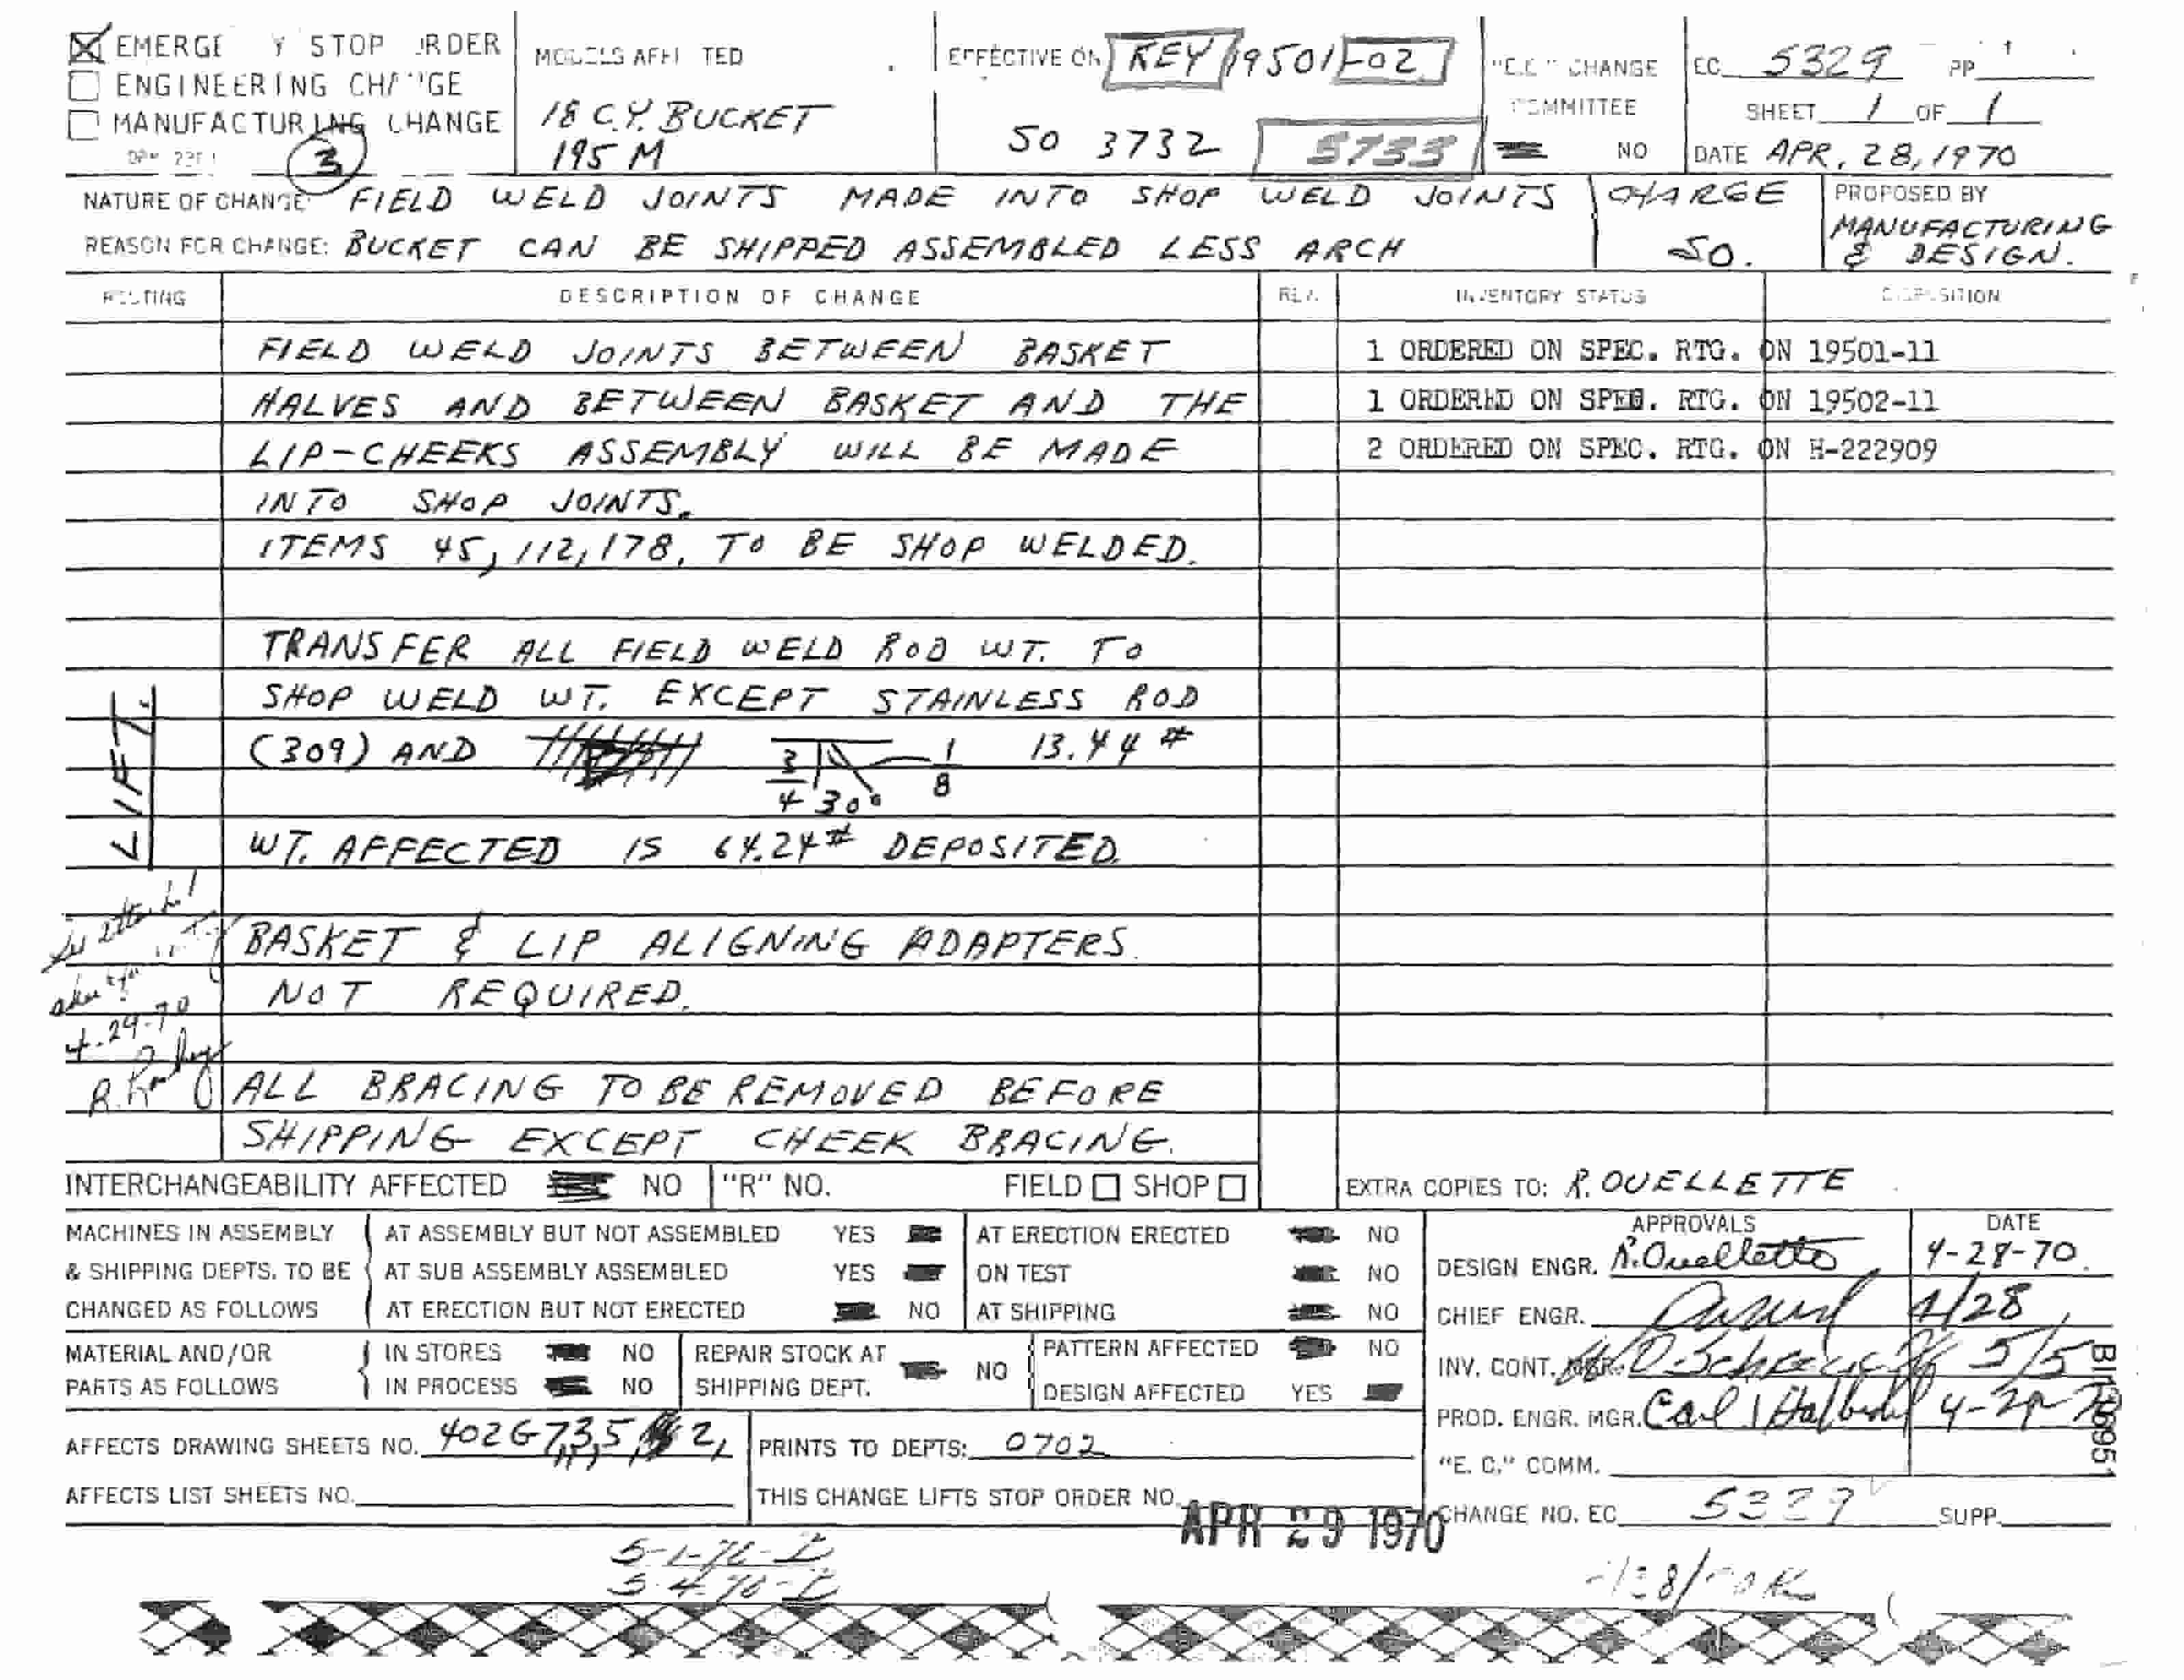 ☒ EMERGE Y STOP RDER
☐ ENGINEERING CHANGE
☐ MANUFACTURING CHANGE
3
MODELS AFFE TED
18 C.Y. BUCKET
195 M
EFFECTIVE ON KEY 19501-02
SO 3732 3733
"E.C." CHANGE
COMMITTEE
NO
EC 5329 PP
SHEET 1 OF 1
DATE APR, 28, 1970
NATURE OF CHANGE: FIELD WELD JOINTS MADE INTO SHOP WELD JOINTS
REASON FOR CHANGE: BUCKET CAN BE SHIPPED ASSEMBLED LESS ARCH
CHARGE
SO.
PROPOSED BY
MANUFACTURING
& DESIGN.
ROUTING DESCRIPTION OF CHANGE REV. INVENTORY STATUS DISPOSITION
FIELD WELD JOINTS BETWEEN BASKET
HALVES AND BETWEEN BASKET AND THE
LIP-CHEEKS ASSEMBLY WILL BE MADE
INTO SHOP JOINTS.
ITEMS 45, 112, 178, TO BE SHOP WELDED.
TRANSFER ALL FIELD WELD ROD WT. TO
SHOP WELD WT. EXCEPT STAINLESS ROD
(309) AND 3/4 30° 1/8 13.44 #
WT. AFFECTED IS 64.24# DEPOSITED.
BASKET & LIP ALIGNING ADAPTERS
NOT REQUIRED.
ALL BRACING TO BE REMOVED BEFORE
SHIPPING EXCEPT CHEEK BRACING.
1 ORDERED ON SPEC. RTG. ON 19501-11
1 ORDERED ON SPEC. RTG. ON 19502-11
2 ORDERED ON SPEC. RTG. ON H-222909
LIFT.
4-29-70
INTERCHANGEABILITY AFFECTED NO "R" NO. FIELD ☐ SHOP ☐
EXTRA COPIES TO: R. OUELLETTE
MACHINES IN ASSEMBLY
& SHIPPING DEPTS. TO BE
CHANGED AS FOLLOWS
AT ASSEMBLY BUT NOT ASSEMBLED YES
AT SUB ASSEMBLY ASSEMBLED YES
AT ERECTION BUT NOT ERECTED NO
AT ERECTION ERECTED NO
ON TEST NO
AT SHIPPING NO
MATERIAL AND/OR
PARTS AS FOLLOWS
IN STORES NO
IN PROCESS NO
REPAIR STOCK AT
SHIPPING DEPT. NO
PATTERN AFFECTED NO
DESIGN AFFECTED YES
AFFECTS DRAWING SHEETS NO. 402G7,3,5, 2,
PRINTS TO DEPTS: 0702
AFFECTS LIST SHEETS NO.
THIS CHANGE LIFTS STOP ORDER NO.
APPROVALS DATE
DESIGN ENGR. R. Ouellette 4-28-70.
CHIEF ENGR. 4/28
INV. CONT. MGR. 5/5
PROD. ENGR. MGR. Carl
"E. C." COMM.
CHANGE NO. EC 5329 SUPP.
APR 29 1970